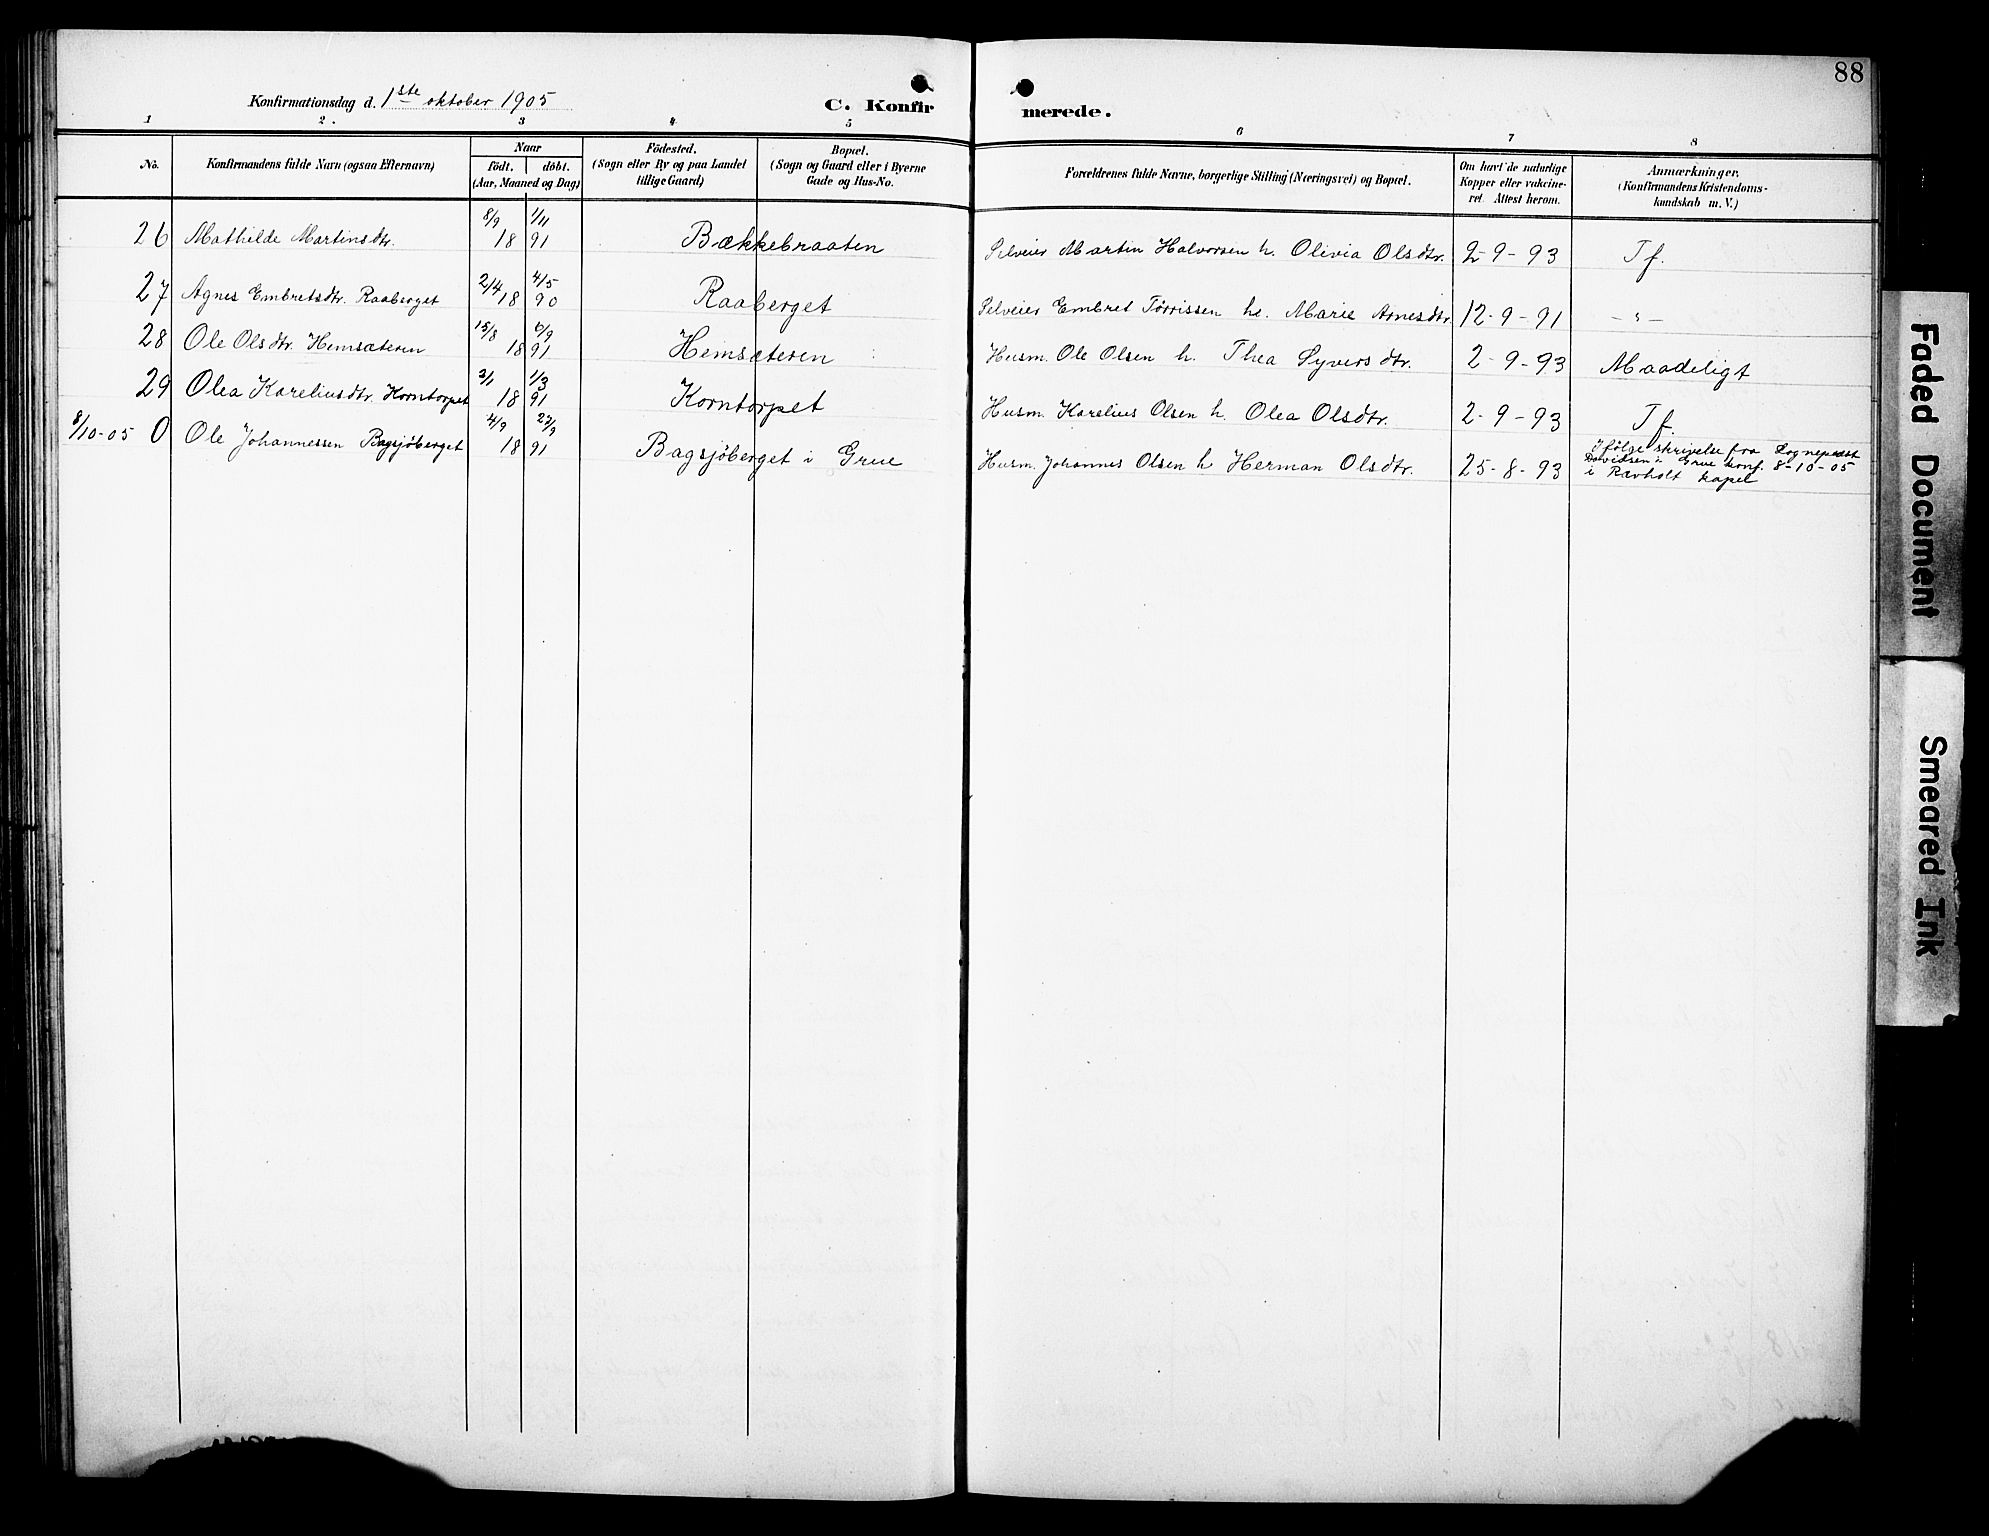 88
Konfirmationsdag d. 1ste oktober 1905
C. Konfir merede.
1 2. 3 4 5 6 7 8
No. Konfirmandens fulde Navn (ogsaa Efternavn) Naar födt. döbt. (Aar, Maaned og Dag) Födested. (Sogn eller By og paa Landet tillige Gaard) Bopæl. (Sogn og Gaard eller i Byerne Gade og Hus-No. Forældrenes fulde Navne, borgerlige Stilling (Næringsvei) og Bopæl. Om havt de naturlige Kopper eller vakcineret. Attest herom. Anmærkninger. (Konfirmandens Kristendomskundskab m. V.)
26 Mathilde Martinsdtr. 8/9 1/11 18 91 Bækkebraaten Selveier Martin Halvorsen h. Olivia Olsdtr. 2-9-93 Tf.
27 Agnes Embretsdtr. Raaberget 2/4 4/5 18 90 Raaberget Selveier Embret Tørrissen h. Marie Arnesdtr. 12-9-91 - " -
28 Ole Olsdtr. Hemsæteren 15/8 6/9 18 91 Hemsæteren Husm. Ole Olsen h. Thea Syversdtr. 2-9-93 Maadeligt
29 Olea Kareliusdtr. Korntorpet 1/3 18 91 Korntorpet Husm. Karelius Olsen h. Olea Olsdtr. 2-9-93 Tf.
8/10-05 0 Ole Johannessen Bagsjöberget 4/9 27/9 18 91 Bagsjöberget i Grue Husm. Johannes Olsen h Herman Olsdtr. 25-8-93 Ifölge skrivelse fra Sogneprest
Davidsen i Grue konf. 8-10-05
i Rævholt kapel
Faded Document
Smeared Ink